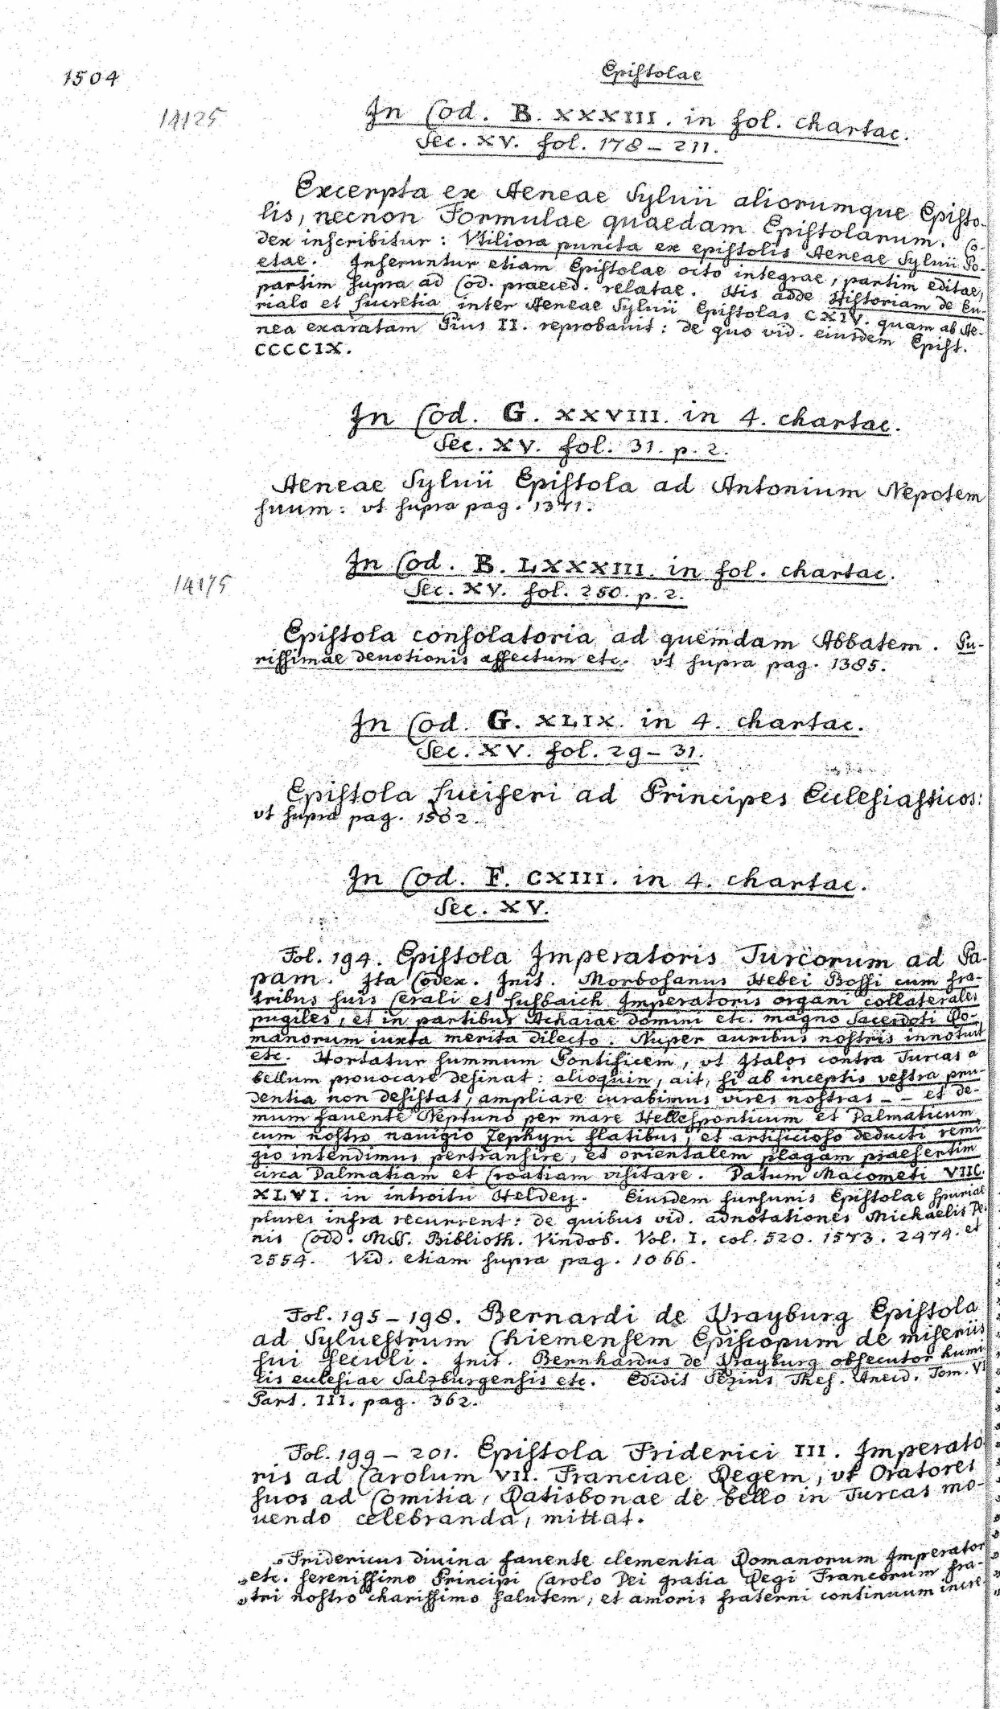 1504
Epistolae
14125
In Cod. B. XXXIII. in fol. chartac.
Sec. XV. fol. 178 – 211.
Excerpta ex Aeneae Syluii aliorumque Episto-
lis, necnon Formulae quaedam Epistolarum. Co-
dex inscribitur: Vtiliora puncta ex epistolis Aeneae Syluii Po-
etae. Inseruntur etiam Epistolae octo integrae, partim editae,
partim supra ad Cod. praeced. relatae. His adde Historiam de Eu-
rialo et Lucretia inter Aeneae Syluii Epistolas CXIV. quam ab Ae-
nea exaratam Pius II. reprobauit: de quo vid. eiusdem Epist.
CCCCIX.
In Cod. G. XXVIII. in 4. chartac.
Sec. XV. fol. 31. p. 2.
Aeneae Syluii Epistola ad Antonium Nepotem
suum: vt supra pag. 1371.
14175
In Cod. B. LXXXIII. in fol. chartac.
Sec. XV. fol. 250. p. 2.
Epistola consolatoria ad quemdam Abbatem. Pu-
rissimae deuotionis affectum etc. vt supra pag. 1385.
In Cod. G. XLIX. in 4. chartac.
Sec. XV. fol. 29 – 31.
Epistola Luciferi ad Principes Ecclesiasticos:
vt supra pag. 1502.
In Cod. F. CXIII. in 4. chartac.
Sec. XV.
Fol. 194. Epistola Imperatoris Turcorum ad Pa-
pam. Ita Codex. Init. Morbosanus Hebei Bossi cum fra-
tribus suis Cerali et Lusbaich Imperatoris organi collaterales
pugiles, et in partibus Achaiae domini etc. magno Sacerdoti Ro-
manorum iuxta merita dilecto. Nuper auribus nostris innotuit
etc. Hortatur summum Pontificem, vt Italos contra Turcas a
bellum prouocare desinat: alioquin, ait, si ab inceptis vestra pru-
dentia non desistat, ampliare curabimus vires nostras – – et de-
mum fauente Neptuno per mare Hellesponticum et Dalmaticum
cum nostro nauigio Zephyri flatibus, et artificioso deducti remi-
gio intendimus pertransire, et orientalem plagam praesertim
circa Dalmatiam et Croatiam visitare. Datum Macometi VIIC.
XLVI. in introitu Heldey. Eiusdem fursuris Epistolae spuriae
plures infra recurrent: de quibus vid. adnotationes Michaelis De-
nis Codd. MSS. Biblioth. Vindob. Vol. I. col. 520. 1573. 2474. et
2554. Vid. etiam supra pag. 1066.
Fol. 195 – 198. Bernardi de Krayburg Epistola
ad Syluestrum Chiemensem Episcopum de miseriis
sui seculi. Init. Bernhardus de Krayburg obsecutor humi-
lis ecclesiae Salzburgensis etc. Edidit Pezius Thes. Anecd. Tom. VI
Part. III. pag. 362.
Fol. 199 – 201. Epistola Friderici III. Imperato
ris ad Carolum VII. Franciae Regem, vt Oratores
suos ad Comitia, Ratisbonae de bello in Turcas mo-
uendo celebranda, mittat.
„Fridericus diuina fauente clementia Romanorum Imperator
„etc. serenissimo Principi Carolo Dei gratia Regi Francorum fra-
„tri nostro charissimo salutem, et amoris fraterni continuum incre-